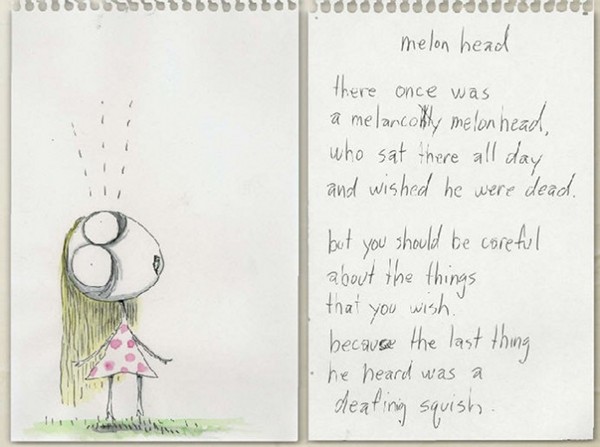 melon head
there once was
a melancolly melonhead,
who sat there all day
and wished he were dead.
but you should be careful
about the things
that you wish.
because the last thing
he heard was a
deafinig squish.